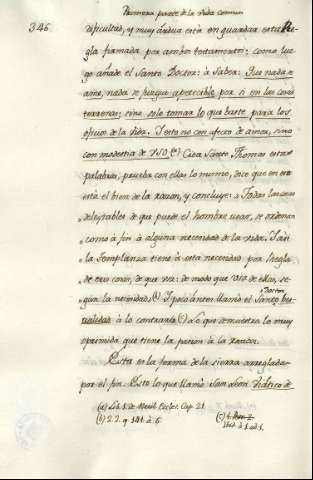 Primera parte de la vida comun
346.
dificultad, y muy árdua está en guardar esta Re
gla formada por ambos testamentos; como lue
go añade el Santo Doctor: à saber: Que nada se
ame, nada se juzgue apetecible por sí en las cosas
terrenas; sino solo tomar lo que baste para los
oficios de la vida. Y esto no con afecto de amor, sino
con modestia de uso (a) Cita Santo Thomas estas
palabras, prueba con ellas lo mismo, dice que en es
to está el bien de la razon, y concluye: Todas las cosas
deleytables de que puede el hombre usar, se ordenan
como à fin à alguna necesidad de la vida. Y asi
la Templanza tiene à esta necesidad por Regla
de las cosas, de que usa: de modo que use de ellas, se
gun la necesidad (b) Y poco antes llamó el Santo Doctor bes
tialidad à lo contrario (c) Lo que demuestra lo muy
oprimida que tiene la pasion à la razon.
Esta es la forma de la arreglada
por el fin. Esto lo que llamó San Leon
(a) Lib. 1. de Morib. Eccles. Cap. 21.
(b) 2. 2. q. 141. à. 6.
(c)